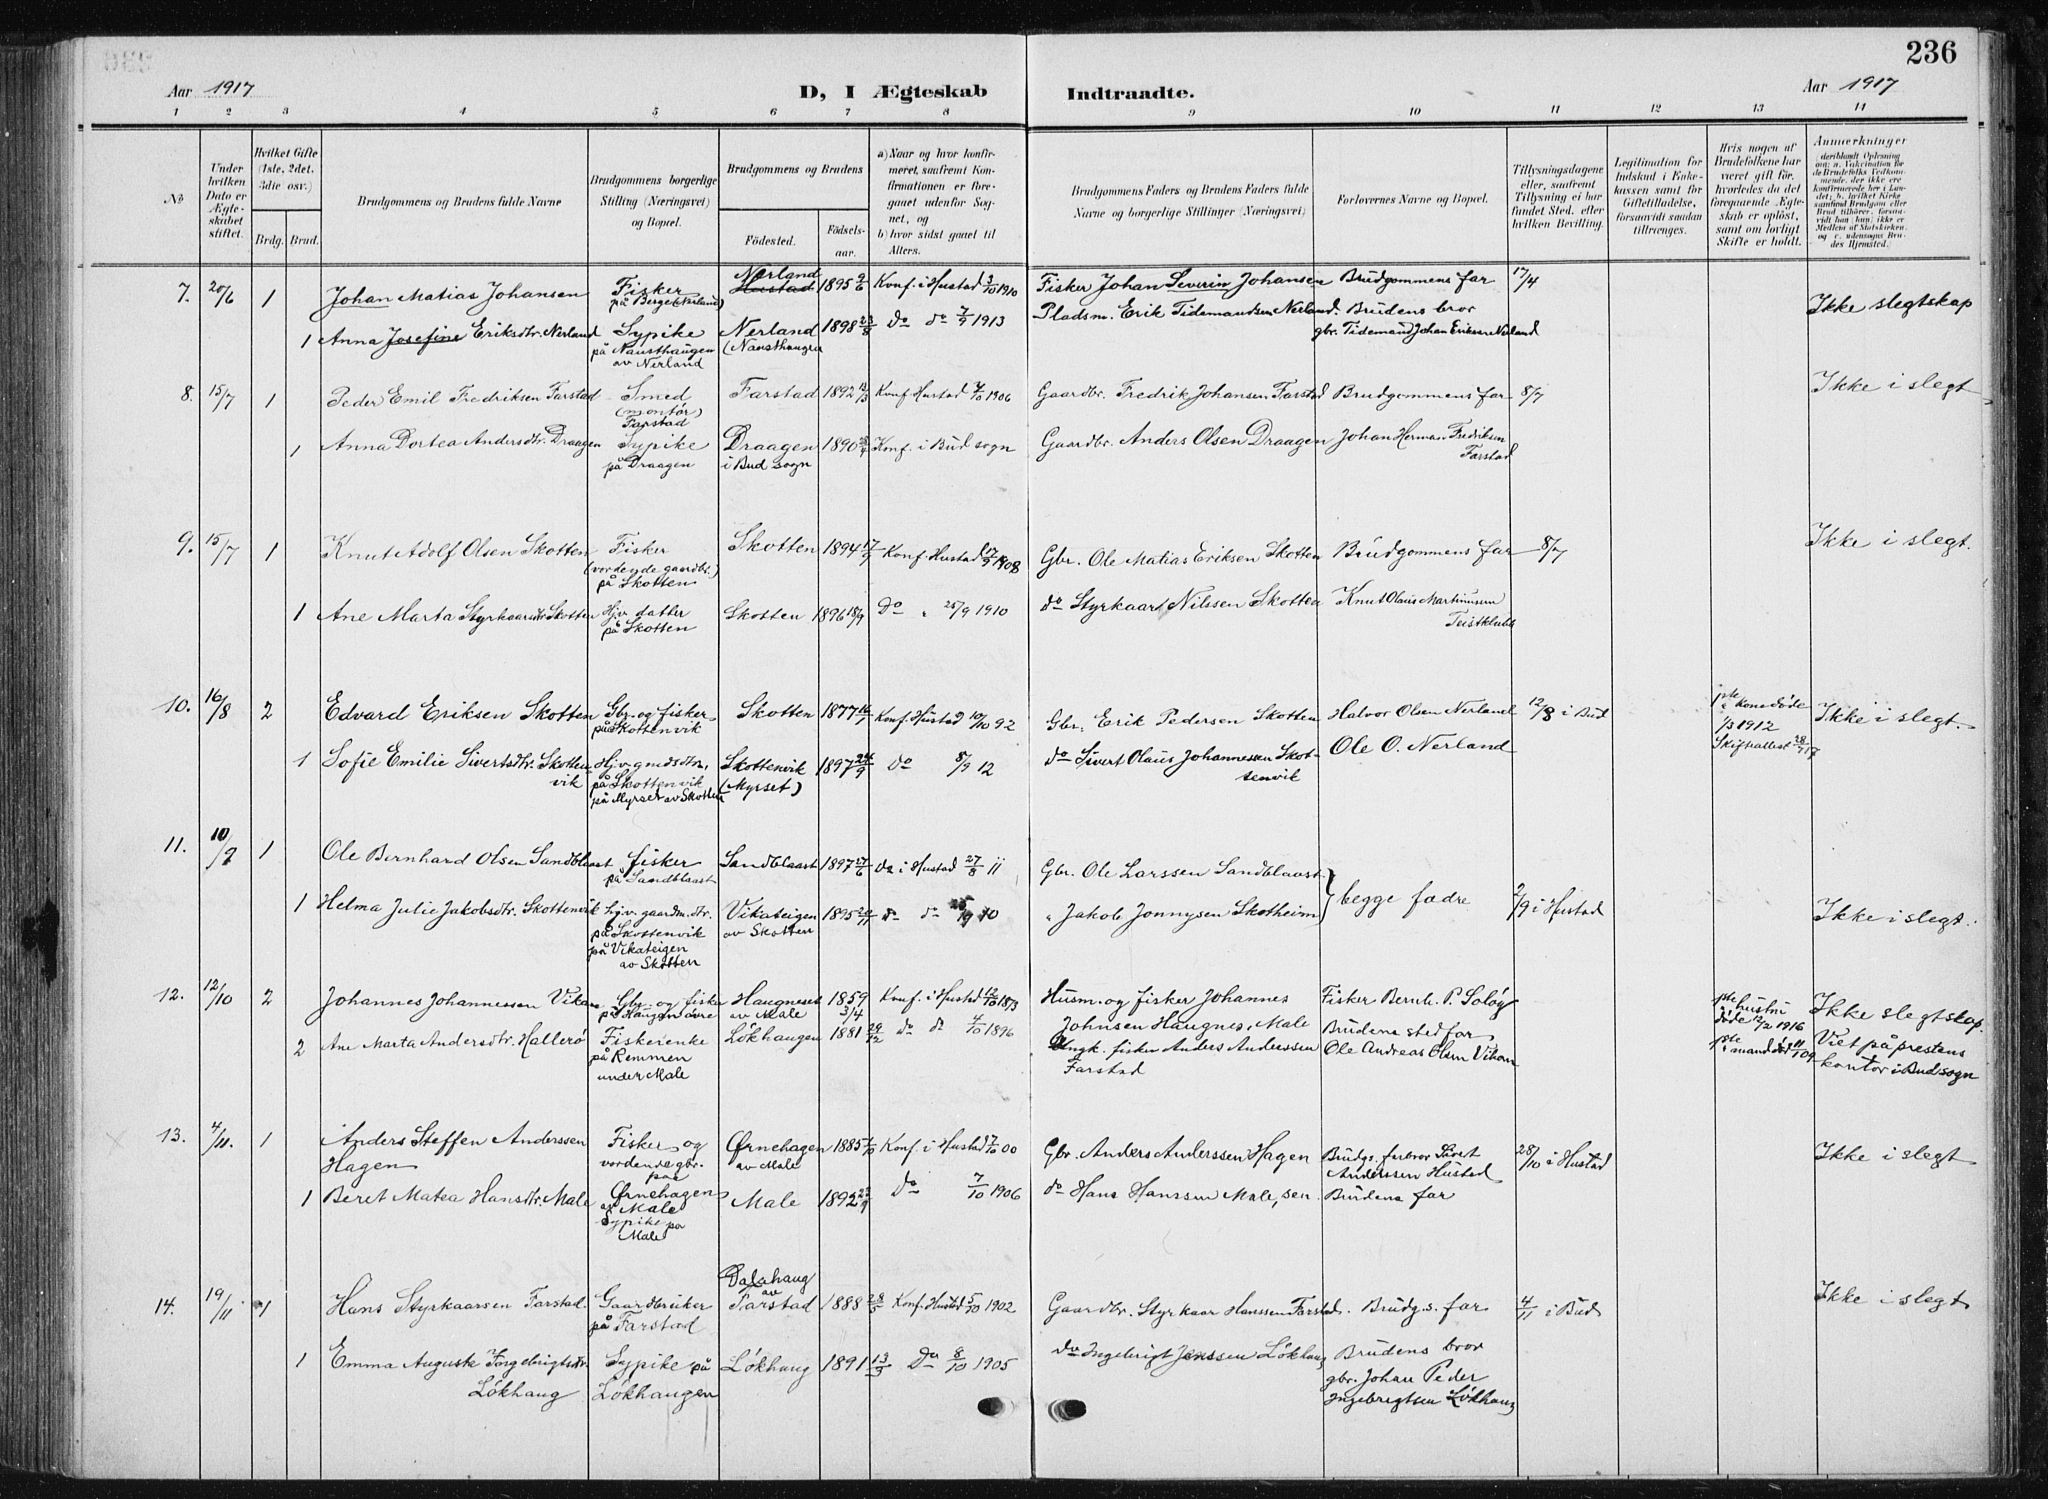 236
Aar 1917
D, I Ægteskab Indtraadte.
Aar 1917
1 2 3 4 5 6 7 8 9 10 11 12 13 14
№
Under hvilken Dato er Ægteskabet stiftet.
Hvilket Gifte (1ste, 2det, 3die osv.)
Brdg. Brud.
Brudgommens og Brudens fulde Navne
Brudgommens borgerlige Stilling (Næringsvei) og Bopæl.
Brudgommens og Brudens
Födested.
Födselsaar.
a) Naar og hvor konfirmeret, saafremt Konfirmationen er foregaaet udenfor Sognet, og
b) hvor sidst gaaet til Alters.
Brudgommens Faders og Brudens Faders fulde Navne og borgerlige Stillinger (Næringsvei)
Forlovernes Navne og Bopæl.
Tillysningsdagene eller, saafremt Tillysning ei har fundet Sted, efter hvilken Bevilling.
Legitimation for Indskud i Enkekassen samt for Giftetilladelse, forsaavidt saadan tiltrænges.
Hvis nogen af Brudefolkene har været gift før, hvorledes da det foregaaende Ægteskab er oplöst, samt om lovligt Skifte er holdt.
Anmærkninger
7. 20/6 1 Johan Matias Johansen Fisker på Berget (Nerland) Nerland Hustad 1895 2/6 Konf. i Hustad 3/10 1910 Fisker Johan Severin Johansen Brudgommens far 17/4 Ikke slegtskap
1 Anna Josefine Eriksdtr. Nerland Sypike på Nausthaugen av Nerland Nerland (Nausthaugen 1898 23/8 do do 7/9 1913 Pladsm. Erik Tidemandsen Nerland. Brudens bror gbr. Tidemand Johan Eriksen Nerland
8. 15/7 1 Peder Emil Fredriksen Farstad Smed (montör) Farstad Farstad 1892 12/3 Konf. Hustad 7/10 1906 Gaardbr. Fredrik Johansen Farstad Brudgommens far 8/7 Ikke i slegt
1 Anna Dortea Andersdtr. Draagen Sypike på Draagen Draagen i Bud sogn 1890 Konf. i Bud sogn Gaardbr. Anders Olsen Draagen Johan Herman Fredriksen Farstad
9. 15/7 1 Knut Adolf Olsen Skotten Fisker (vordende gaardbr.) på Skotten Skotten 1894 17/7 Konf. Hustad 1908 Gbr. Ole Matias Eriksen Skotten Brudgommens far 8/7 Ikke i slegt.
1 Ane Marta Styrkaarsdtr Skotten Hjv. datter på Skotten Skotten 1896 18/9 do " 25/9 1910 do Styrkaar Nilssen Skotten Knut Olaus Martinusen Teistklubb
10. 16/8 2 Edvard Eriksen Skotten Gbr. og fisker på Skottenvik Skotten 1877 Konf. Hustad 10/10 92 Gbr. Erik Pedersen Skotten Halvor Olsen Nerland 12/8 i Bud 1ste kone døde 1/3 1912 Skifteattest 28/7 17 Ikke i slegt.
1 Sofie Emilie Sivertsdtr. Skottenvik Hjv. gmdsdtr. på Skottenvik på Myrset av Skotten Skottenvik (Myrset) 1897 24/9 do 8/9 12 do Sivert Olaus Johannessen Skottenvik Ole O. Nerland
11. 10/9 1 Ole Bernhard Olsen Sandblaast fisker på Sandblaast Sandblaast 1897 17/6 do i Hustad 27/8 11 Gbr. Ole Larssen Sandblaast } begge fædre 2/9 i Hustad
1 Helma Julie Jakobsdtr. Skottenvik hjv. gaardm. dtr. på Skottenvik på Vikateigen av Skotten Vikateigen av Skotten 1895 20/11 do do 25/9 10 " Jakob Jonnysen Skotheim Ikke i slegt.
12. 12/10 2 Johannes Johannessen Vikan Gbr. og fisker på Haugen øvre Haugneset av Male 1859 3/4 Konf. i Hustad 12/10 1873 Husm. og fisker Johannes Johnsen Haugnes, Male Fisker Bernh. P. Soløy 1ste hustru døde 12/2 1916 Ikke slegtskap.
2 Ane Marta Andersdtr. Hallerø Fiskerenke på Remmen under Male Løkhaugen 1881 29/12 do do 4/10 1896 Ungk. fisker Anders Anderssen Farstad Brudens stedfar Ole Andreas Olsen Vikan 1ste mand död 11/1 09 Viet på prestens kontor i Bud sogn
13. 4/11. 1 Anders Steffen Anderssen Hagen Fisker og vordende gbr. paa Ørnehagen av Male Ørnehagen av Male 1885 1/10 Konf. i Hustad 7/10 00 Gbr. Anders Anderssen Hagen Brudg. farbror Sivert Anderssen Hustad 28/10 i Hustad Ikke i slegt
1 Beret Matea Hansdtr. Male Sypike paa Male Male 1892 do 7/10 1906 do Hans Hanssen Male, sen. Brudens far
14. 19/11 1 Hans Styrkaarsen Farstad Gaardbruker på Farstad Dalahaug av Farstad 1888 28/5 Konf. Hustad 5/10 1902 Gaardbr. Styrkaar Hanssen Farstad. Brudg.s. far 4/11 i Bud Ikke i slegt
1 Emma Auguste Ingebrigtsdtr. Løkhaug Sypike på Løkhaugen Løkhaug 1891 13/3 do 8/10 1905 do Ingebrigt Jenssen Løkhaug Brudens bror gbr. Johan Peder Ingebrigtsen Løkhaug